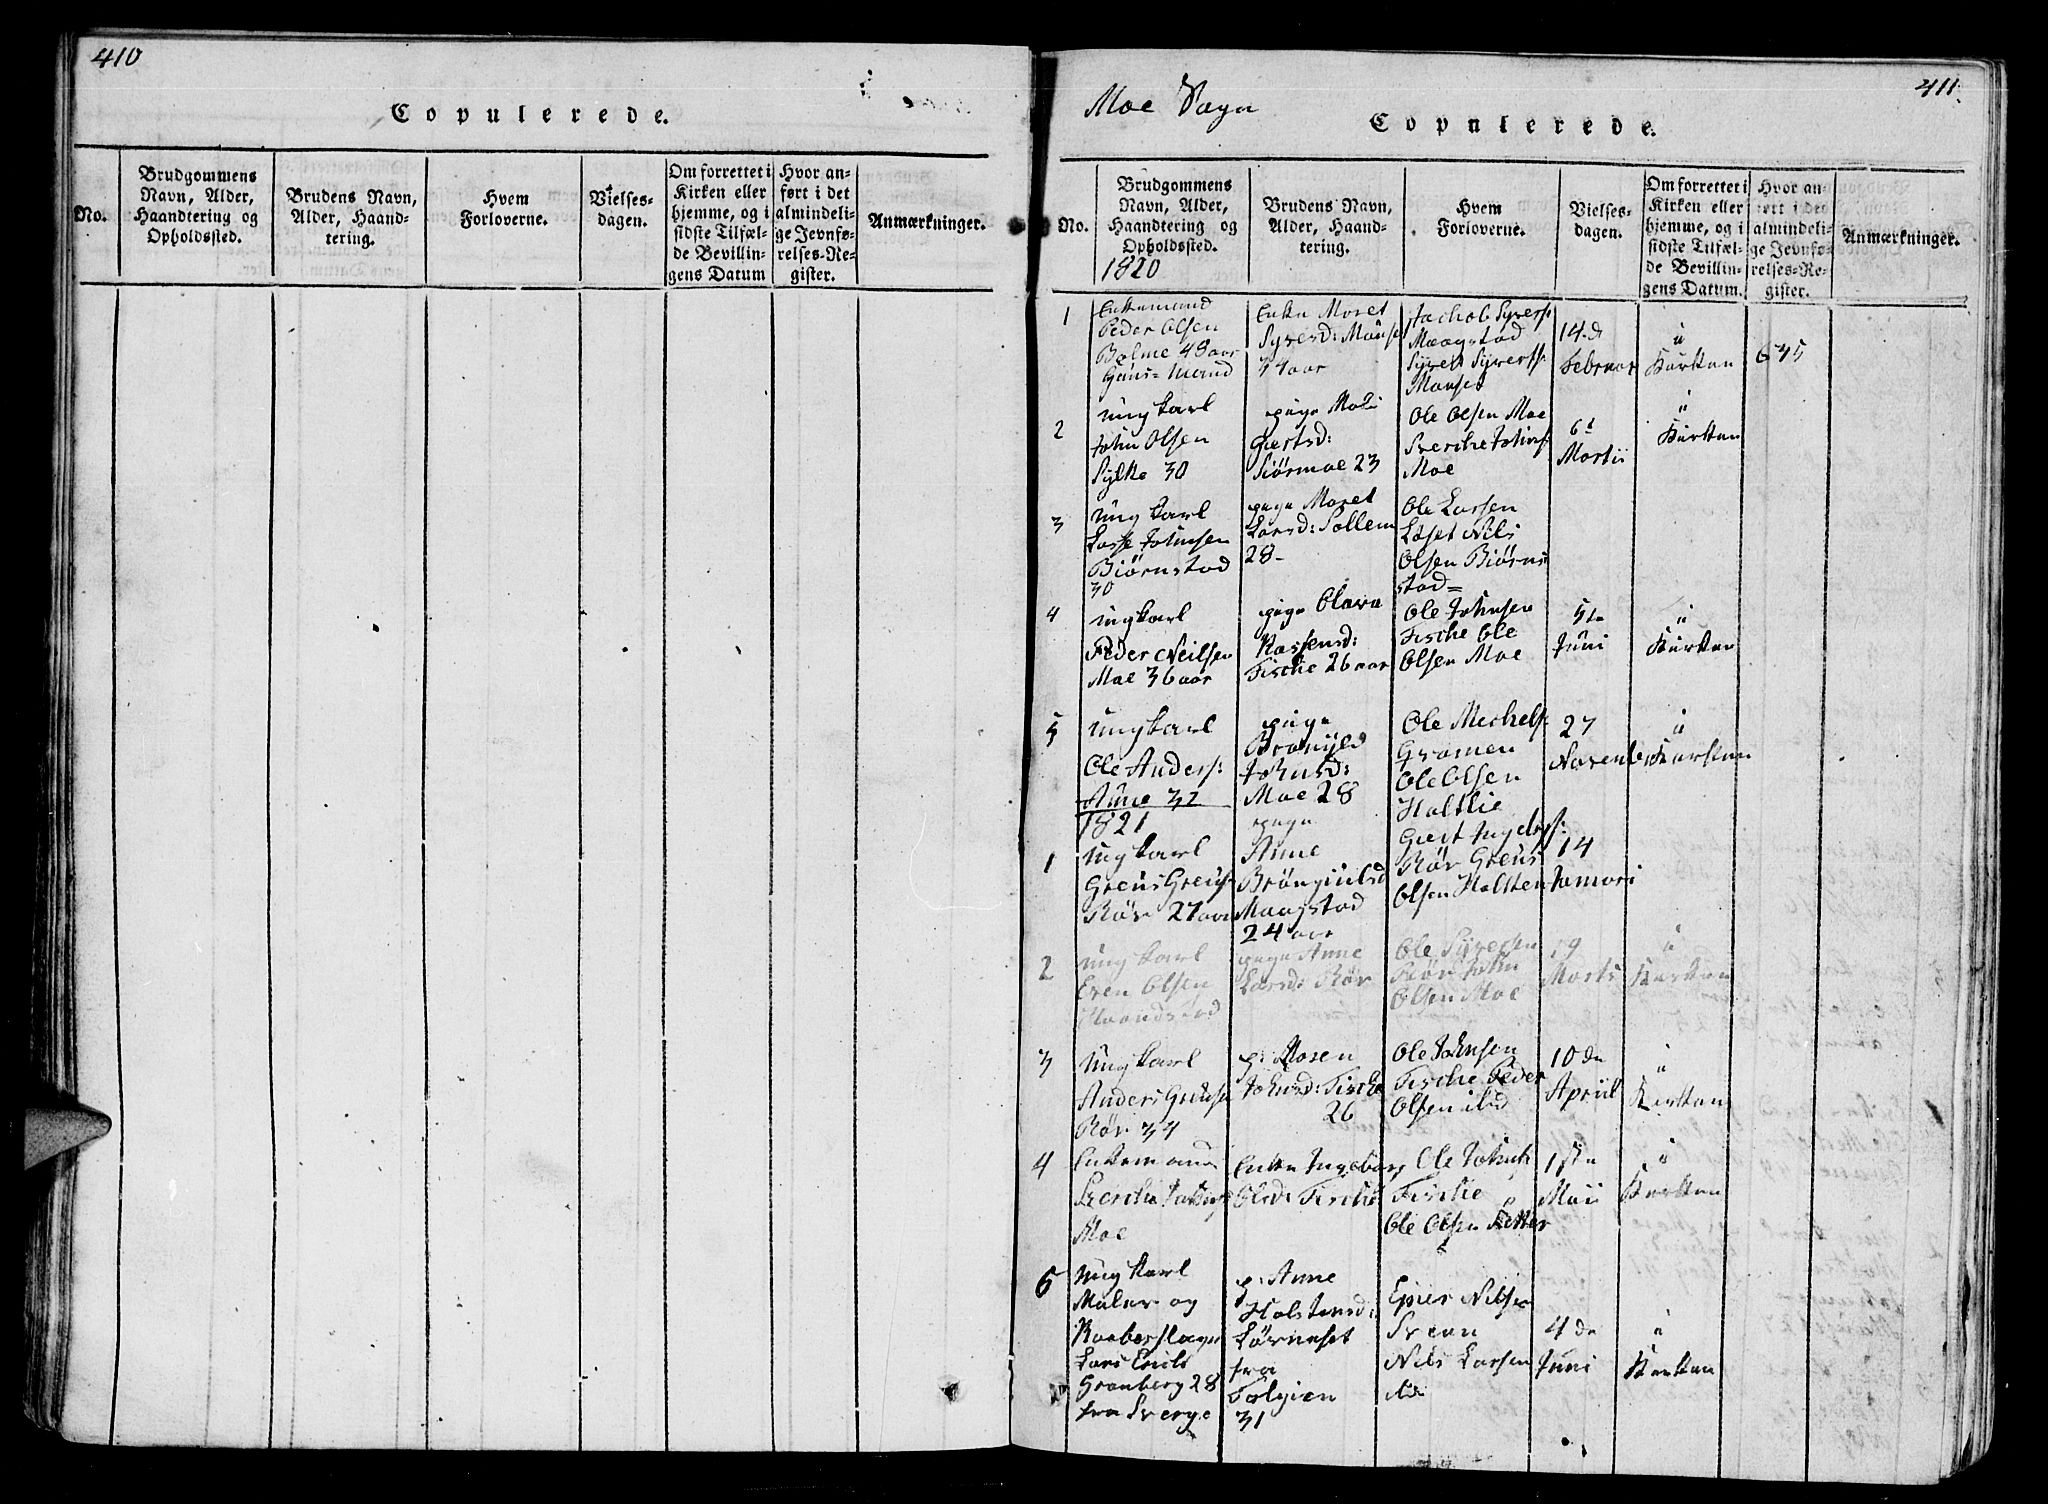 410
Copulerede.
No.
Brudgommens
Navn, Alder,
Haandtering og
Opholdssted.
Brudens Navn,
Alder, Haand-
tering.
Hvem
Forloverne.
Vielses-
dagen.
Om forrettet i
Kirken eller
hjemme, og i
sidste Tilfæl-
de Bevillin-
gens Datum
Hvor an-
ført i det
almindeli-
ge Jevnfø-
relses-Re-
gister.
Anmærkninger.
411.
Moe Sogn
Copulerede.
No.
Brudgommens
Navn, Alder,
Haandtering og
Opholdssted.
1820
Brudens Navn,
Alder, Haand-
tering.
Hvem
Forloverne.
Vielses-
dagen.
Om forrettet i
Kirken eller
hjemme, og i
sidste Tilfæl-
de Bevillin-
gens Datum.
Hvor an-
ført i det
almindeli-
ge Jevnfø-
relses-Re-
gister.
Anmærkninger.
1
Enkemand
Peder Olsen
Bolme 48 aar
Huus=Mand
Enke Moret
Syversd:
34 aar
Jachob Syvers:
Maagstad
Syvert Syverts:
14de
Februar
i
Kirken
635
2
ungkarl
John Olsen
Sylte 30
pige
Giertsd:
Siørmoe 23
Ole Olsen Moe
Sverche Johns:
Moe
6t
Martii
i
Kirken
3
ungkarl
Lasse Johnsen
Biørnstad
30
pige Moret
Larsd: Sollem
28-
Ole Larsen
Løset Nils
Olsen Biørn
stad=
4
ungkarl
Peder Neilsen
Moe 36 aar
pige
Fische 26 aar
Ole Johnsen
Fische Ole
Olsen Moe
5te
Juni
i
Kirken
5
ungkarl
Ole Anders:
Aune 32
pige
Johnsd:
Moe 28
Ole Mechels:
Gromen
Ole Olsen
Holtlie
27
November
i
Kirken
1821
1
ungkarl
Greus Greus:
Rör 27 aar
pige
Anne
Maagstad
24 aar
Rör Greus
Olsen Halsten
14
2
ungkarl
Even Olsen
pige Anne
Larsd: Rör
Ole Syversen
Rör John
Olsen Moe
19
Marts
i
Kirken
3
ungkarl
Anders Greusen
Rör 34
p: Mosen
Johnsd: Fische
26
Ole Johnsen
Fische Peder
Olsen ibid
10de
Apriil
i
Kirken
4
Enkemand
Moe
Enke Ingeborg
Olsd: Fische
Ole Johns
Fische
Ole Olsen
1ste
Maii
i
Kirken
5
ungkarl
Maler og
Kaaberslager
Lars Erich
Granberg 28
fra Sverge
p: Anne
Holstensd:
fra
31
Nilsen
Svean
Nils Larsen
4de
Juni
i
Kirken